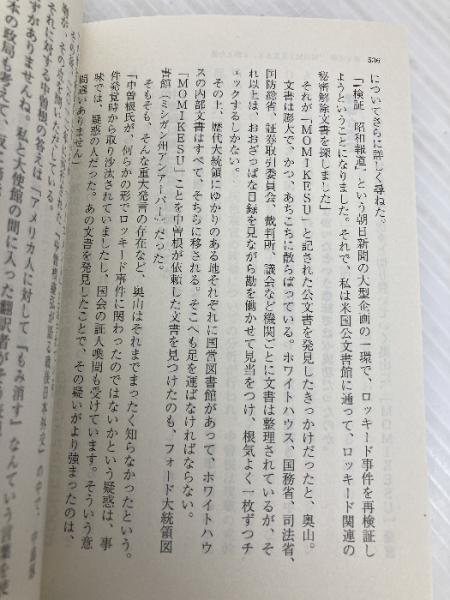 536
についてさらに詳しく尋ねた。
「『検証 昭和報道』という朝日新聞の大型企画の一環で、ロッキード事件を再検証し
ようということになりました。それで、私は米国公文書館に通って、ロッキード関連の
秘密解除文書を探しました」
それが「MOMIKESU」と記された公文書を発見したきっかけだったと、奥山。
文書は膨大で、かつ、あちこちに散らばっている。ホワイトハウス、国務省、司法省、
国防総省、証券取引委員会、裁判所、議会など機関ごとに文書は整理されているが、そ
れ以上は、おおざっぱな目録を見ながら勘を働かせて見当をつけ、根気よく一枚ずつチ
ェックするしかない。
その上、歴代大統領にゆかりのある地それぞれに国営図書館があって、ホワイトハウ
スの内部文書はすべて、そちらに移される。そこへも足を運ばなければならない。
「MOMIKESU」ことを中曽根が依頼した文書を見つけたのも、フォード大統領図
書館（ミシガン州アンアーバー）だった。
そもそも、そんな重大発言の存在など、奥山はそれまでまったく知らなかったという。
「中曽根氏が、何らかの形でロッキード事件に関わったのではないかという疑惑は、事
件発覚時から取り沙汰されていましたし、国会の証人喚問も受けています。そういう意
味では、疑惑の人だった。あの文書を発見したことで、その疑いがより強まったのは、
間違いありません」
それに対する中曽根の答えは「アメリカ人に対して『もみ消す』なんていう言葉を使
すがありませんね。私と大使館の間に入った翻訳者がそう